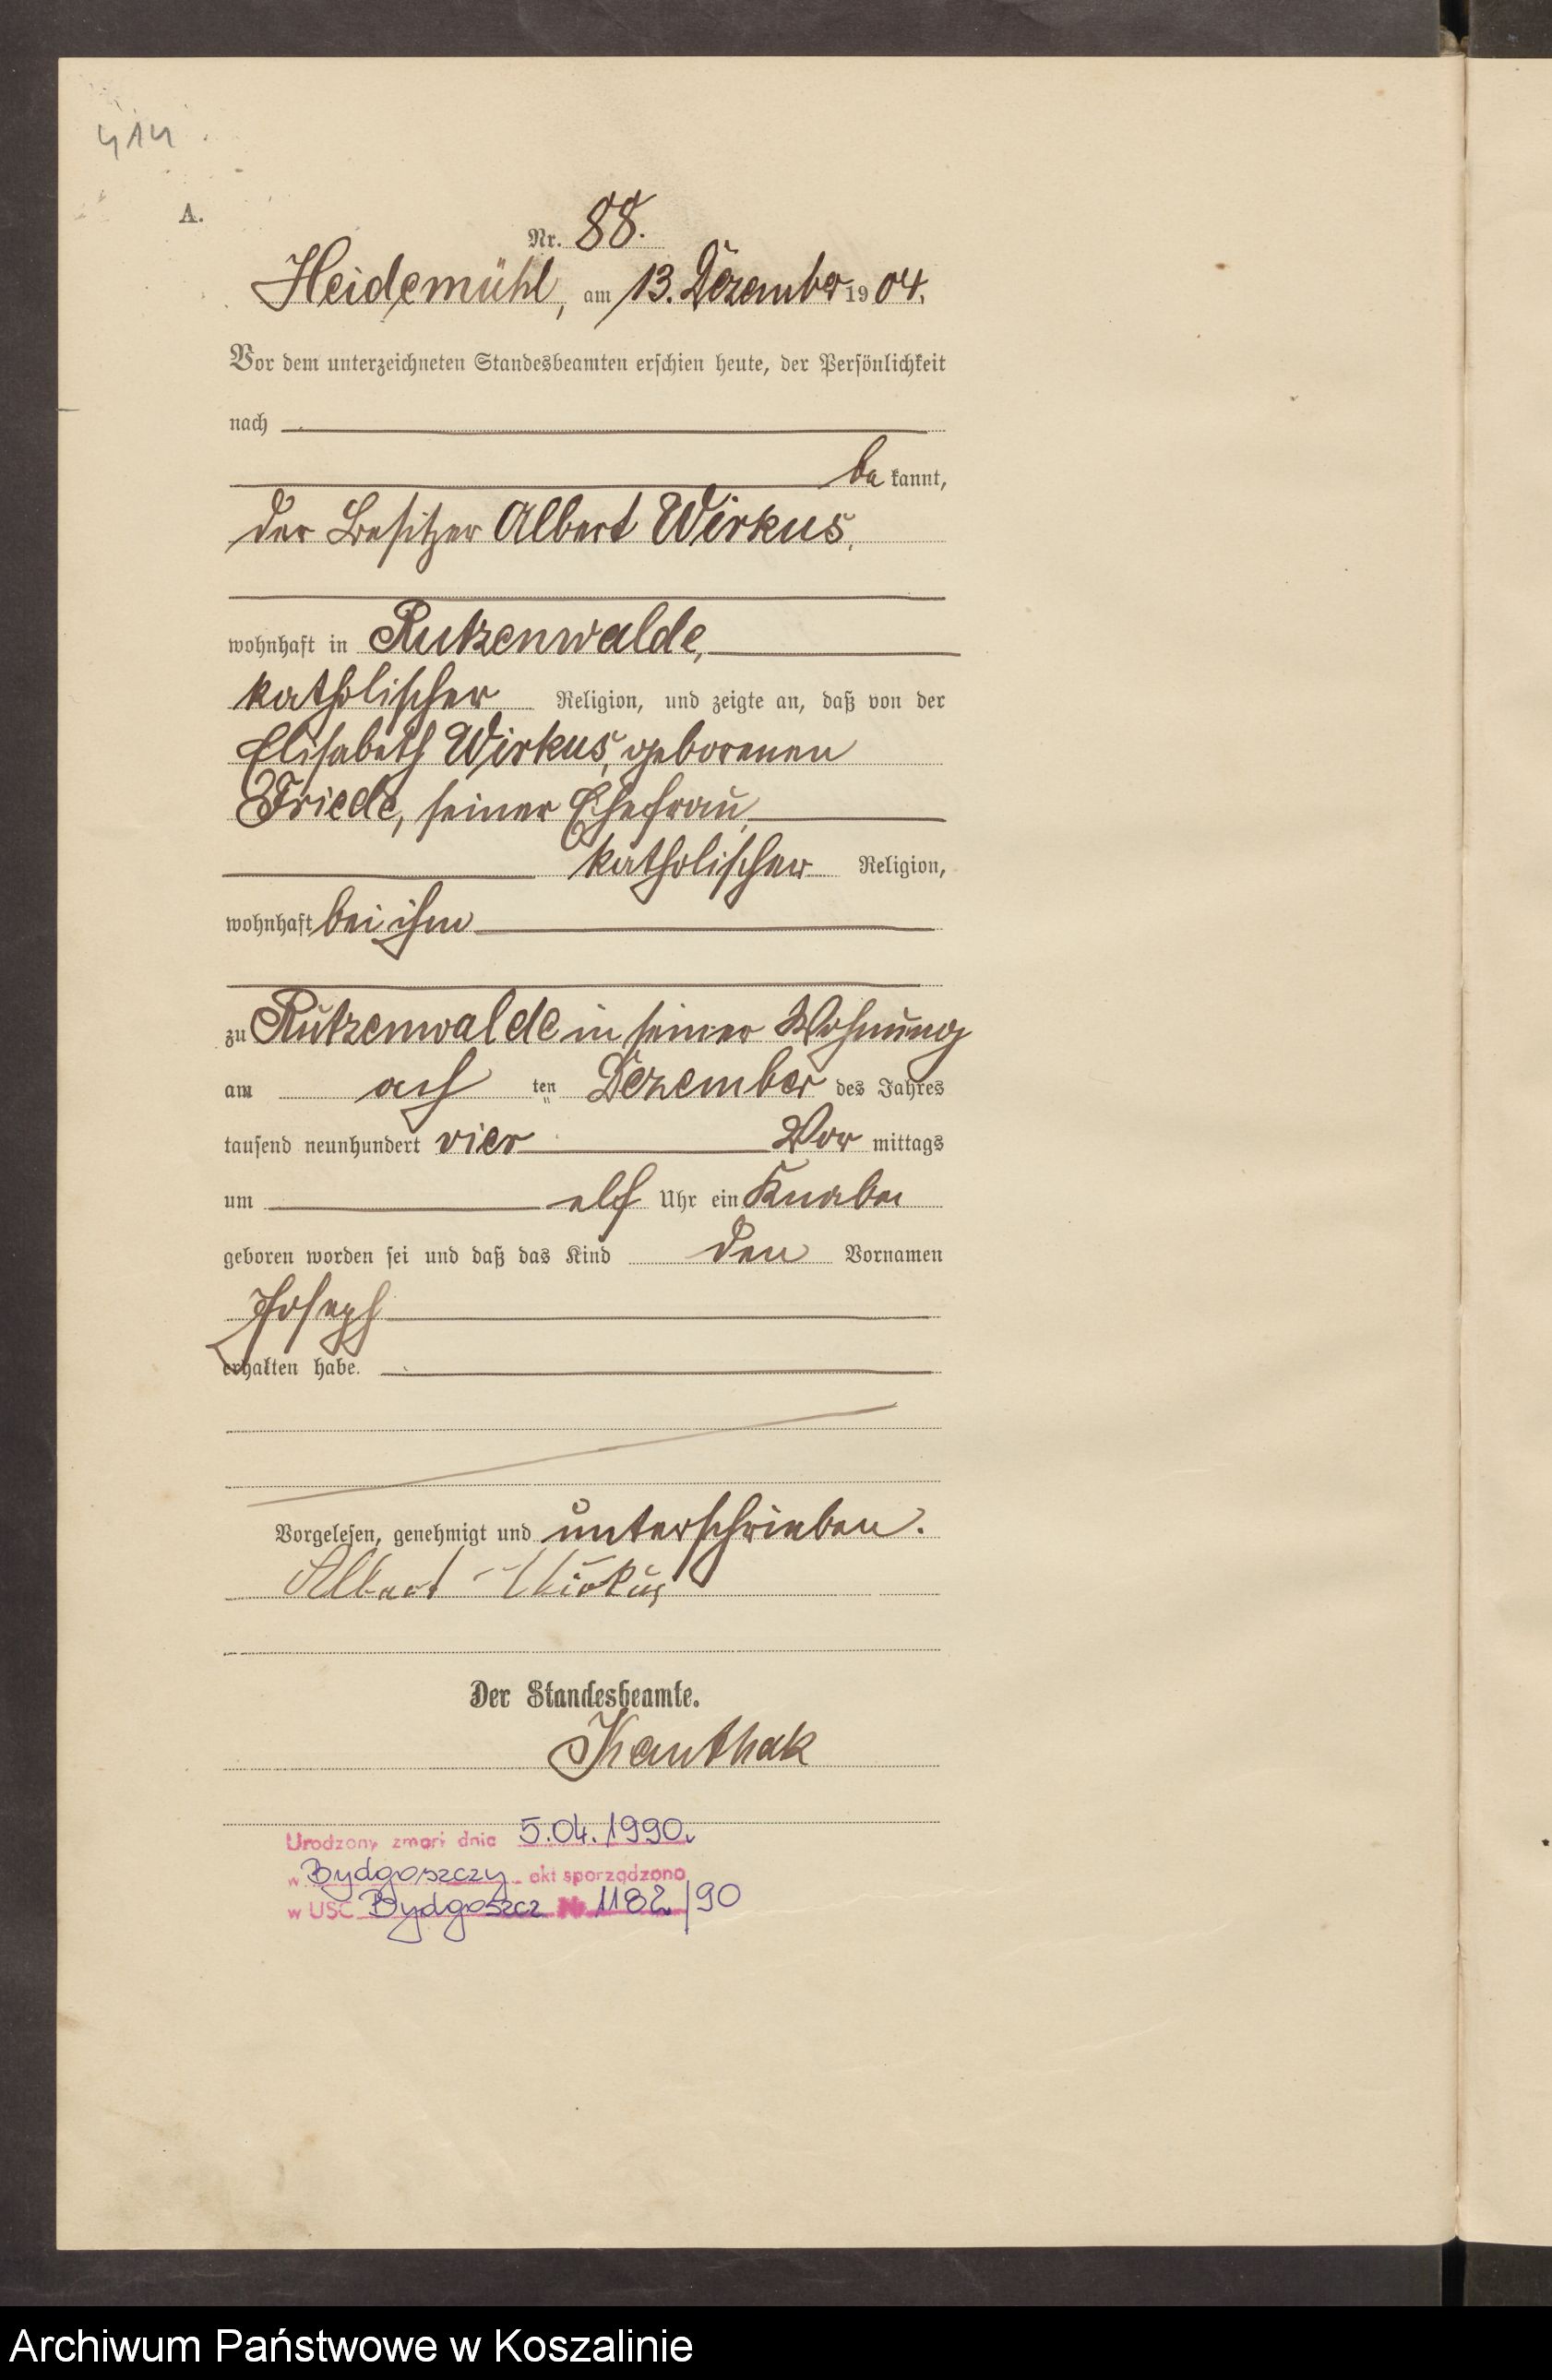 414
A.
Nr. 88.
Heidemühl, am 13. Dezember 1904.
Vor dem unterzeichneten Standesbeamten erschien heute, der Persönlichkeit
nach
be kannt,
der Besitzer Albert Wirkus,
wohnhaft in Rutzenwalde,
katholischer Religion, und zeigte an, daß von der
Elisabeth Wirkus, geborenen
Friede, seiner Ehefrau,
katholischer Religion,
wohnhaft bei ihm
zu Rutzenwalde in seiner Wohnung
am ach ten Dezember des Jahres
tausend neunhundert vier Vor mittags
um elf Uhr ein Knabe
geboren worden sei und daß das Kind den Vornamen
Joseph
erhalten habe.
Vorgelesen, genehmigt und unterschrieben.
Albert Wirkus
Der Standesbeamte.
Kanthak
Urodzony zmarł dnia 5.04.1990.
w Bydgoszczy akt sporządzono
w USC Bydgoszcz Nr 1182/90
Archiwum Państwowe w Koszalinie